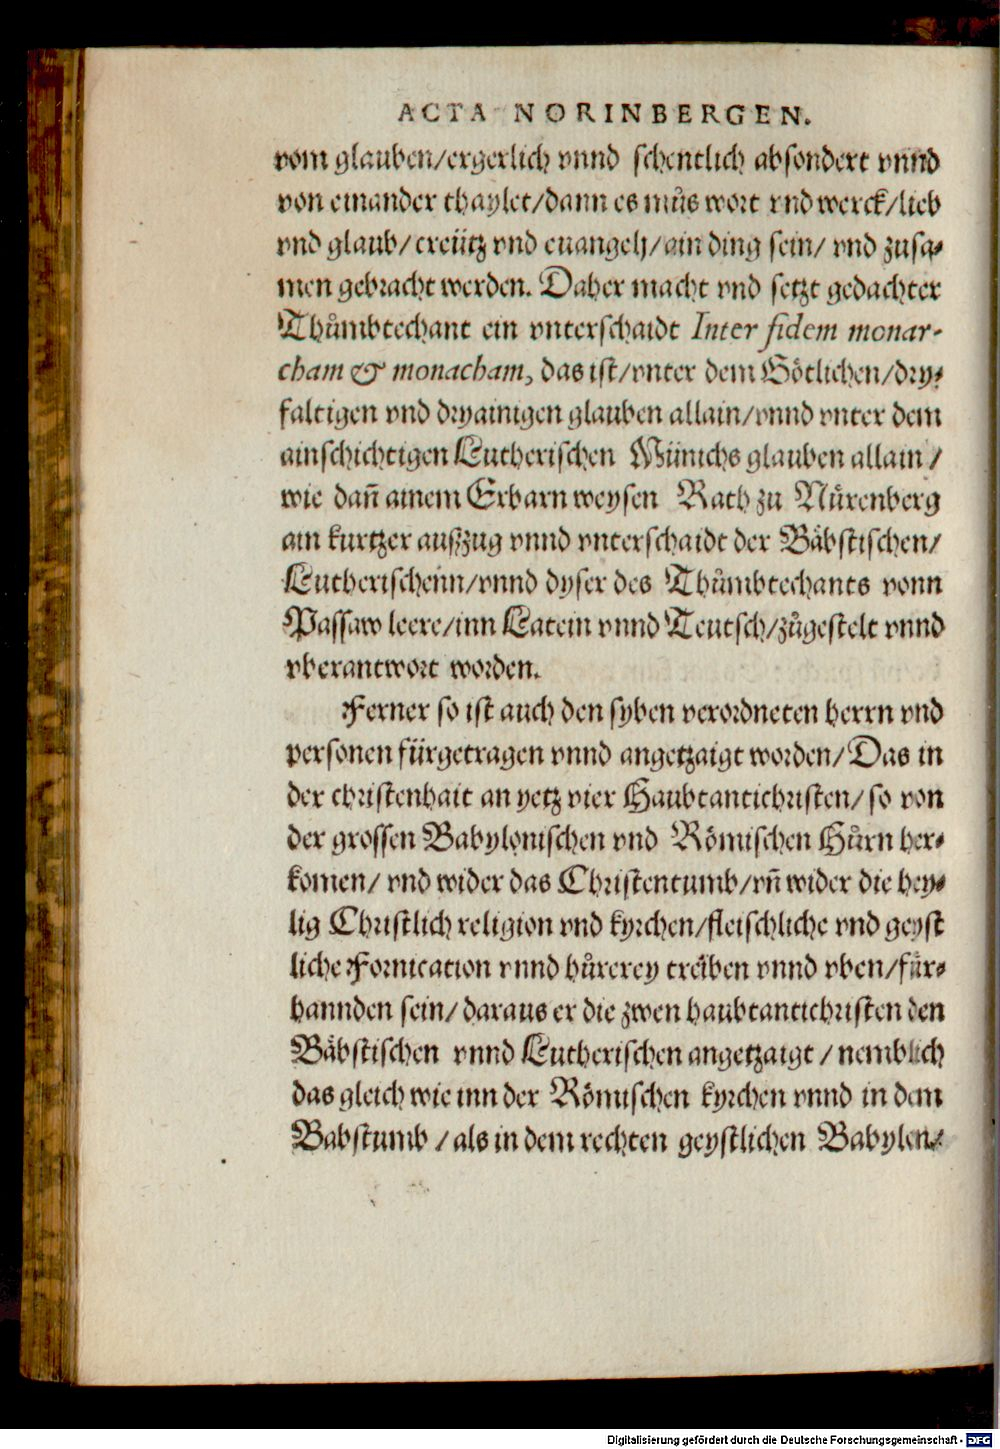 ACTA NORINBERGEN.
vom glauben/ergerlich vnnd schentlich absondert vnnd
von einander thaylet/dann es můs wort vnd werck/lieb
vnd glaub/creütz vnd euangelj/ain ding sein/ vnd zusa⸗
men gebracht werden. Daher macht vnd setzt gedachter
Thůmbtechant ein vnterschaidt Inter fidem monar-
cham & monacham, das ist/vnter dem Götlichen/dry⸗
faltigen vnd dryainigen glauben allain/vnnd vnter dem
ainschichtigen Lutherischen Münichs glauben allain/
wie dañ ainem Erbarn weysen Rath zu Nürenberg
ain kurtzer außzug vnnd vnterschaidt der Bäbstischen/
Lutherischenn/vnnd dyser des Thůmbtechants vonn
Passaw leere/inn Latein vnnd Teutsch/zůgestelt vnnd
vberantwort worden.
Ferner so ist auch den syben verordneten herrn vnd
personen fürgetragen vnnd angetzaigt worden/Das in
der christenhait an yetz vier Haubtantichristen/ so von
der grossen Babylonischen vnd Römischen Hůrn her⸗
komen/ vnd wider das Christentumb/vñ wider die hey⸗
lig Christlich religion vnd kyrchen/fleischliche vnd geyst
liche Fornication vnnd hůrerey treiben vnnd vben/für⸗
hannden sein/ daraus er die zwen haubtantichristen den
Bäbstischen vnnd Lutherischen angetzaigt/nemblich
das gleich wie inn der Römischen kyrchen vnnd in dem
Babstumb/als in dem rechten geystlichen Babylen/
Digitalisierung gefördert durch die Deutsche Forschungsgemeinschaft - DFG